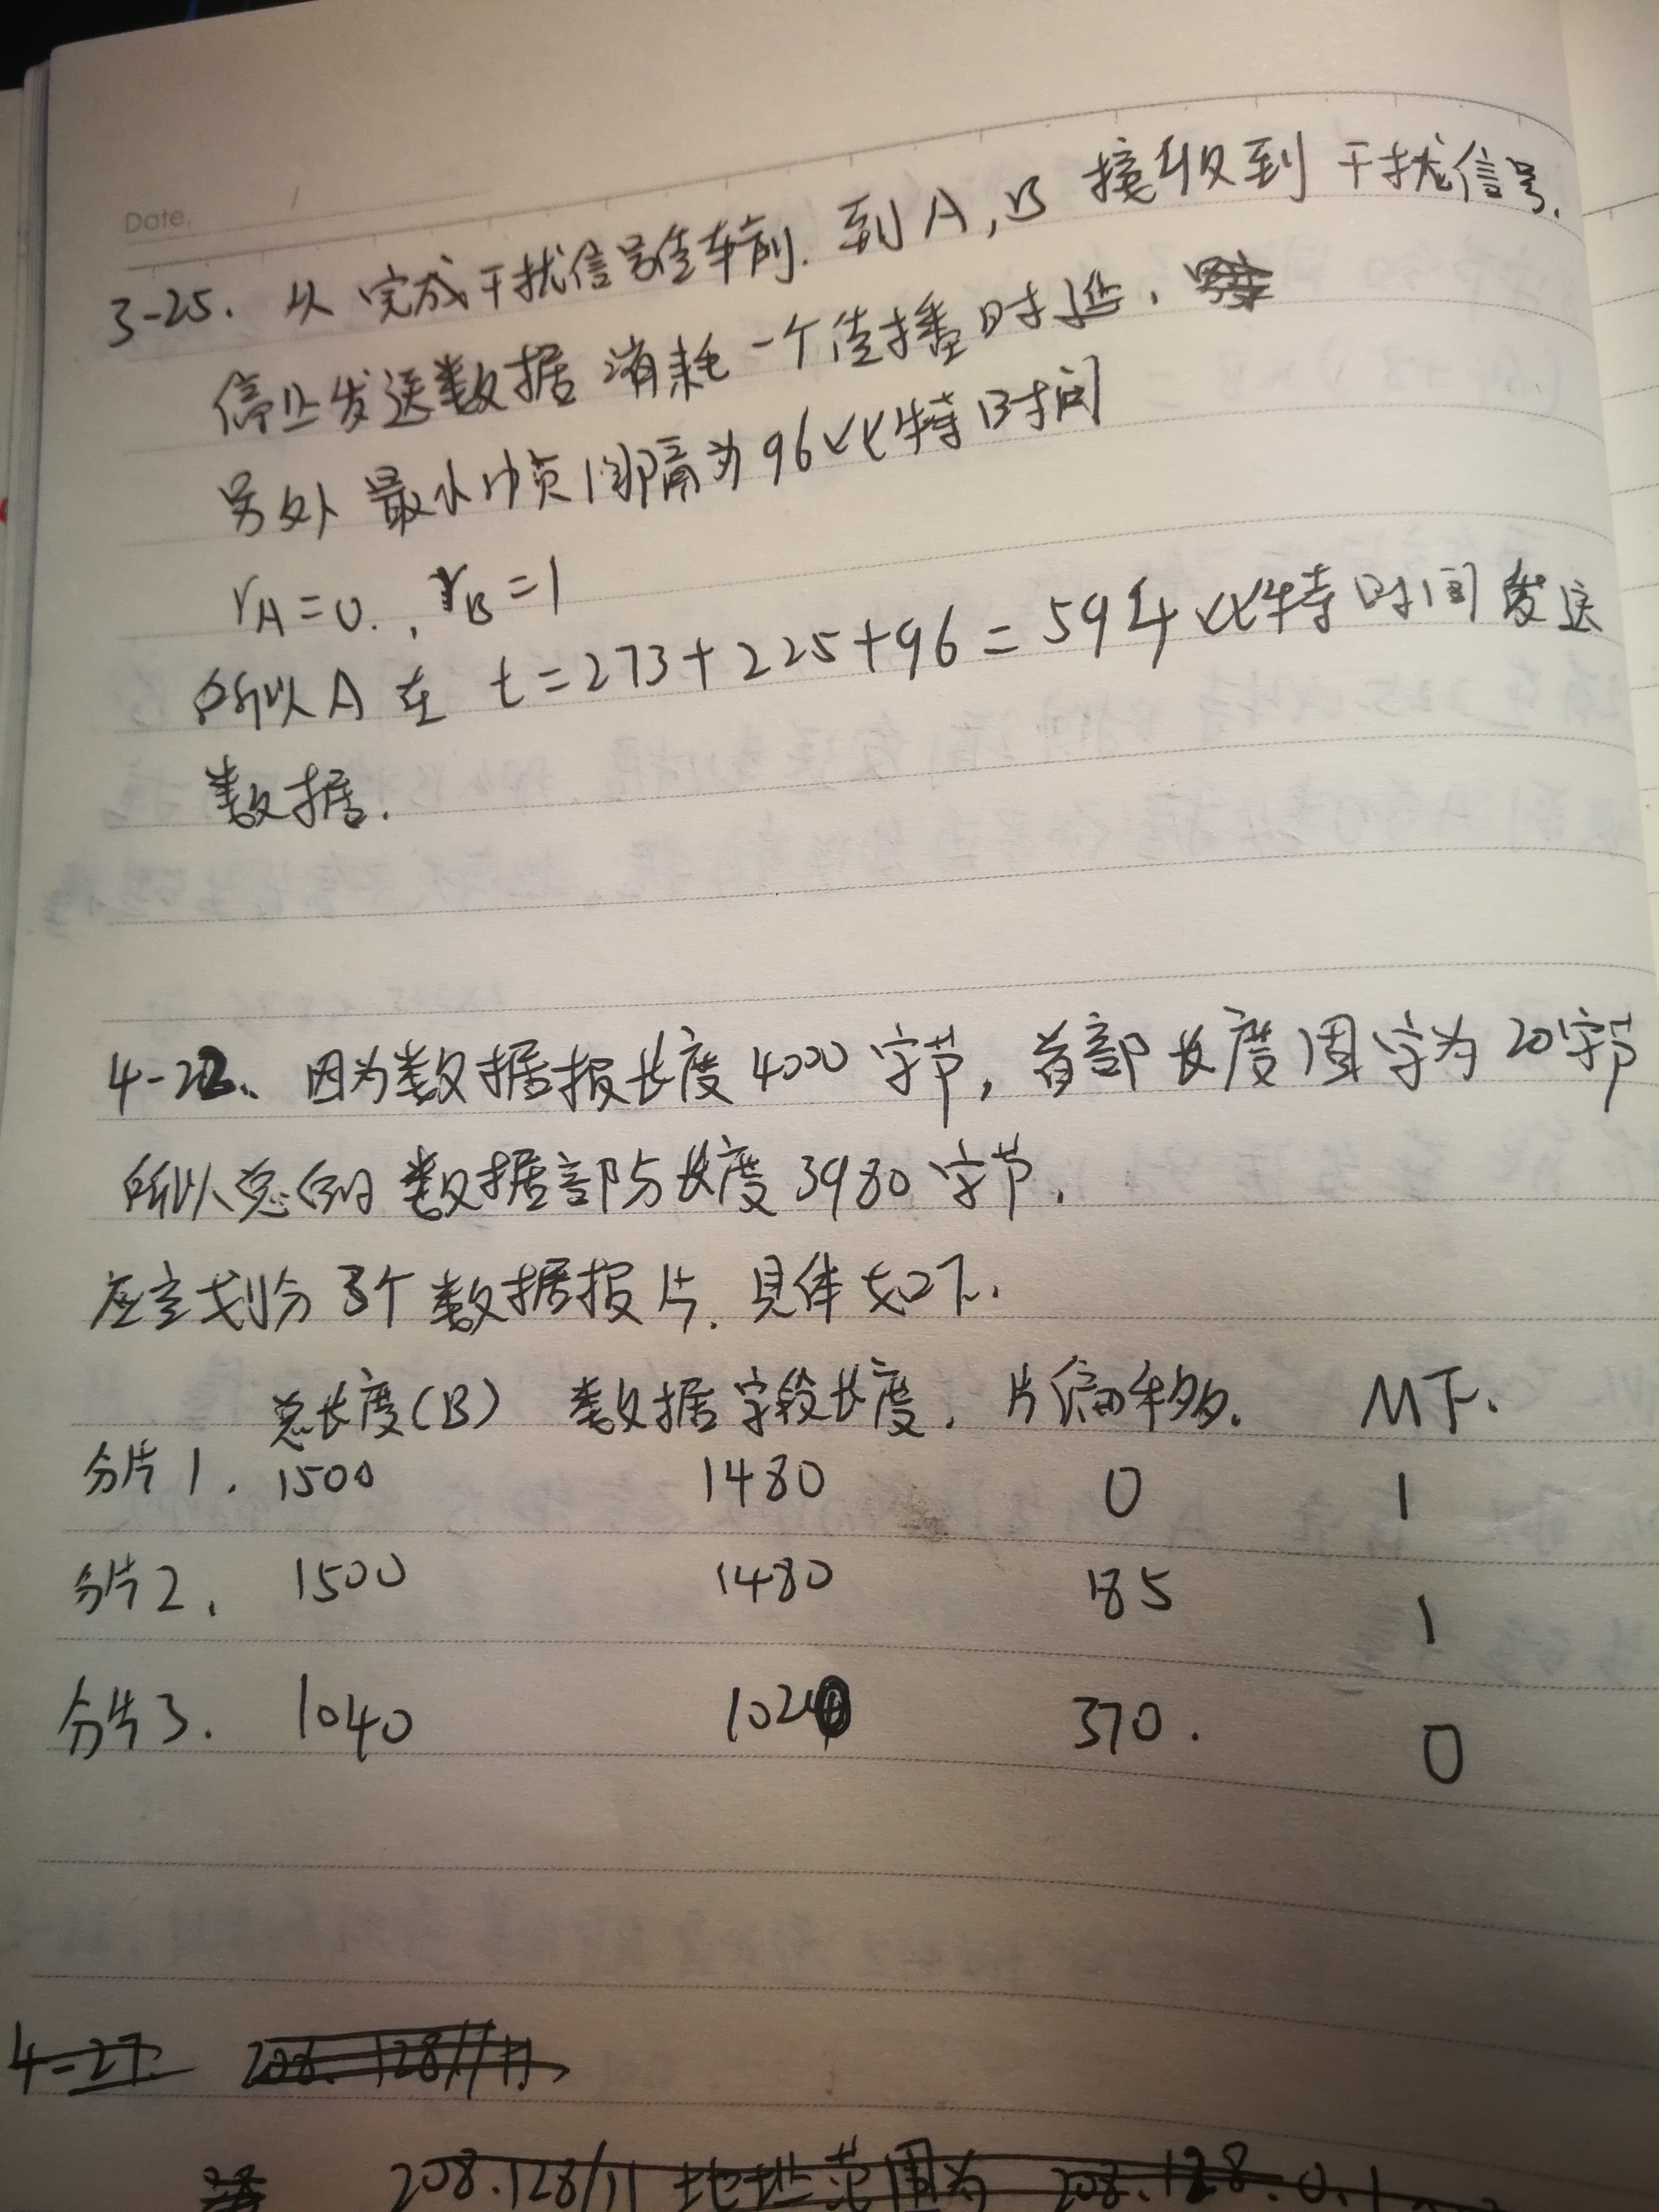 Date.
3-25. 从完成干扰信号传输. 到A,B 接收到干扰信号.
停止发送数据 消耗一个传播时延.
另外 最小帧间隔为96比特时间
rA=0. , rB=1
所以A在 t=273+225+96=594比特时间发送
数据.
4-22、因为数据报长度4000字节, 首部长度固字为20字节
所以总的数据部分长度3980字节.
应该划分3个数据报片. 具体如下.
总长度(B) 数据字段长度. 片偏移. MF.
分片1. 1500 1480 0 1
分片2. 1500 1480 185 1
分片3. 1040 1020 370. 0
4-27. 208.128/11.
208.128/11 地址范围为 208.128.0.1